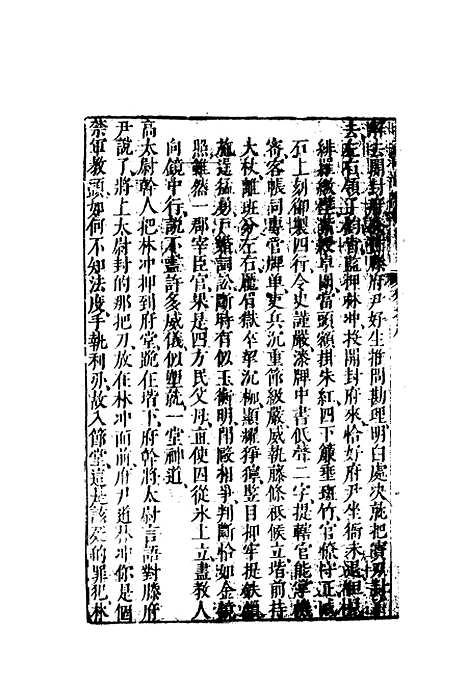 解去開封府分付滕府尹好生推問勘理明白處決就把寶刀封了
去左右領了鈞旨監押林冲投開封府來恰好府尹坐衙未退但見
緋羅繳壁紫綬卓圍當頭額掛朱紅四下簾垂斑竹官僚守正戒
石上刻御製四行令史謹嚴漆牌中書低聲二字提轄官能掌機
密客帳司專管牌單吏兵沉重節級嚴威執藤條祗候立堦前持
大杖離班分左右龎眉獄卒挈沉枷顯耀猙獰豎目押牢提鐵鎖
施逞猛勇戶婚詞訟斷時有似玉衡明鬪毆相爭判斷恰如金鏡
照雖然一郡宰臣官果是四方民父母直使囚從氷上立盡教人
向鏡中行說不盡許多威儀似塑就一堂神道
高太尉幹人把林冲押到府堂跪在堦下府幹將太尉言語對滕府
尹說了將上太尉封的那把刀放在林冲面前府尹道林冲你是個
禁軍教頭如何不知法度手執利刃故入節堂這是該死的罪犯林